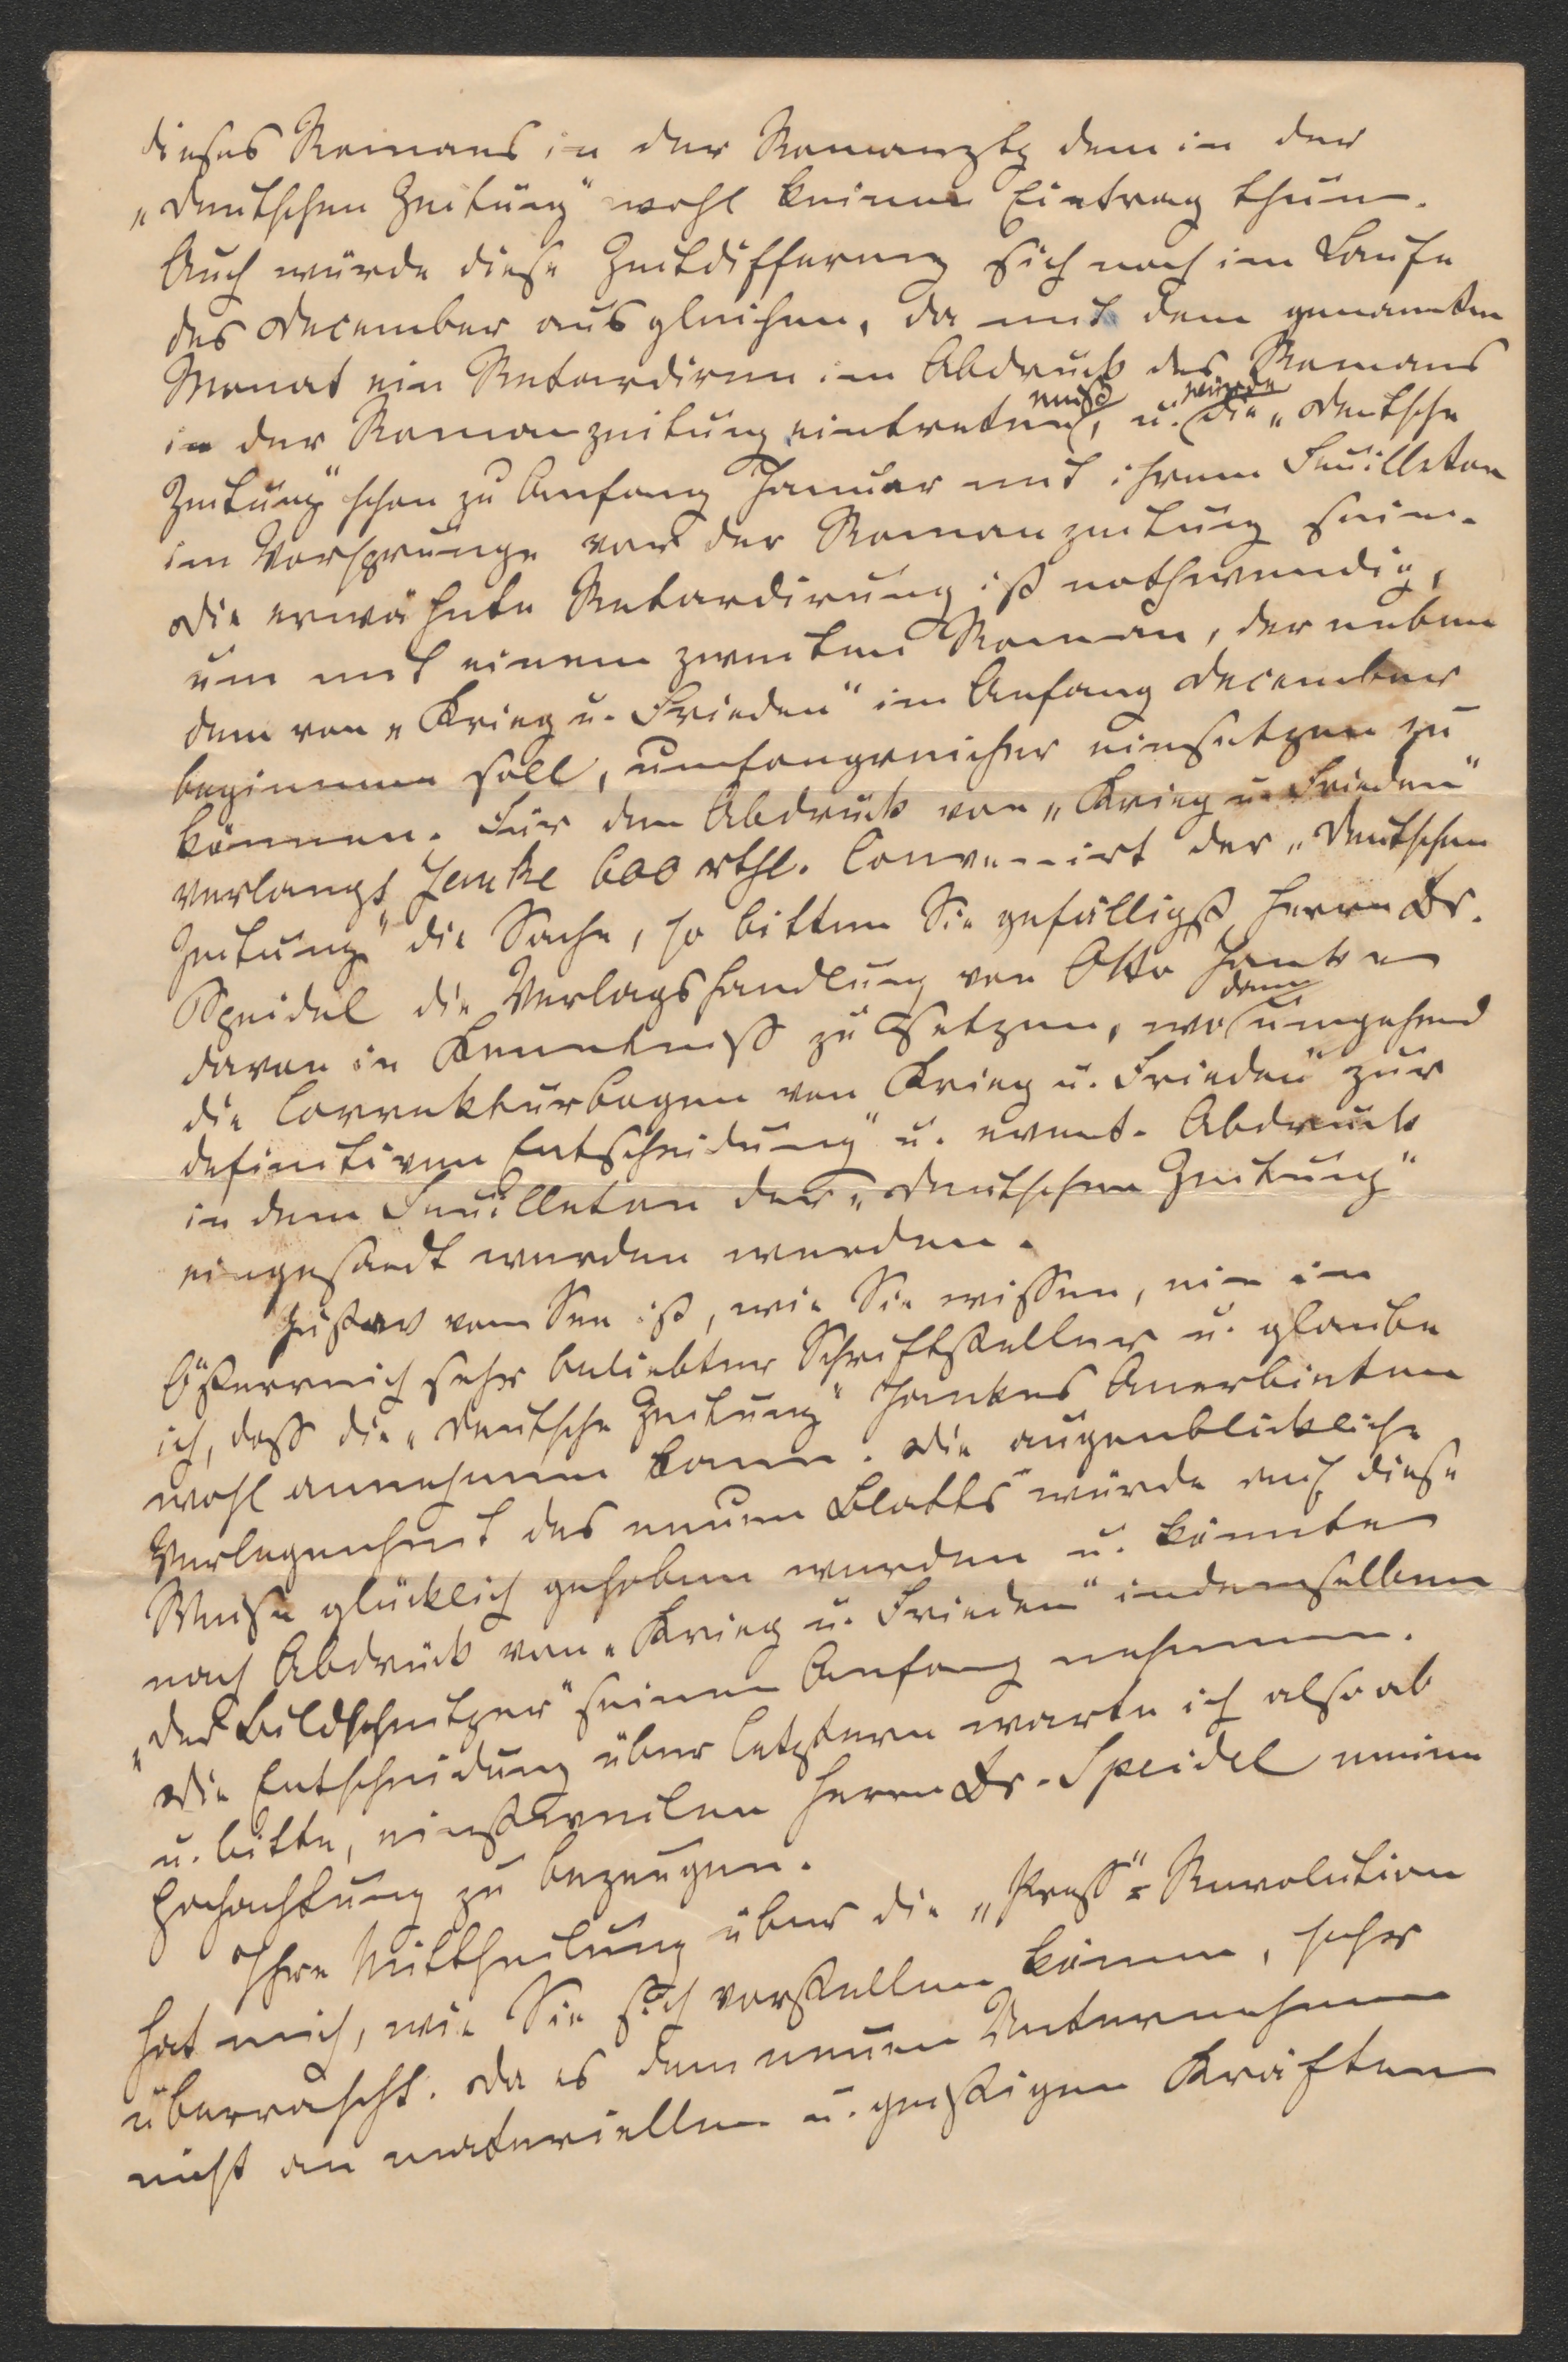 dieses Romans in der Romanztg dem in der
„Deutschen Zeitung" wohl keinen Eintrag thun.
Auch würde diese Zeitdifferenz sich noch im Laufe
des December ausgleichen, da mit dem genannten
Monat ein Retardiren im Abdruck des Romans
in der Romanzeitung eintreten muß, u. würde die „Deutsche
Zeitung" schon zu Anfang Januar mit ihrem Feuilleton
im Vorsprunge vor der Romanzeitung sein.
Die erwähnte Retardirung ist nothwendig,
um mit einem zweiten Roman, der neben
dem von „Krieg u. Frieden" im Anfang December
beginnen soll, umfangreicher einsetzen zu
können. Für den Abdruck von „Krieg u. Frieden"
verlangt Janke 600 rthl. Convenirt der „Deutschen
Zeitung" die Sache, so bitten Sie gefälligst Herrn Dr.
Speidel die Verlagshandlung von Otto Janke
davon in Kenntniß zu setzen, wo dann umgehend
die Correkturbogen von Krieg u. Frieden" zur
definitiven Entscheidung u. event. Abdruck
in dem Feuilleton der „Deutschen Zeitung"
eingesandt werden werden.
Gustav vom See ist, wie Sie wissen, ein im
Österreich sehr beliebter Schriftsteller u. glaube
ich, daß die „Deutsche Zeitung" Jankes Anerbieten
wohl annehmen kann. Die augenblickliche
Verlegenheit des neuen Blatts würde auf diese
Weise glücklich gehoben werden u. könnte
nach Abdruck von „Krieg u. Frieden" in demselben
„Der Bildschnitzer" seinen Anfang nehmen.
Die Entscheidung über letztern warte ich also ab
u. bitte, einstweilen Herrn Dr. Speidel meine
Hochachtung zu bezeugen.
Ihre Mittheilung über die „Preß"-Revolution
hat mich, wie Sie sich vorstellen können, sehr
überrascht. Da es dem neuen Unternehmen
nicht an materiellen u. geistigen Kräften